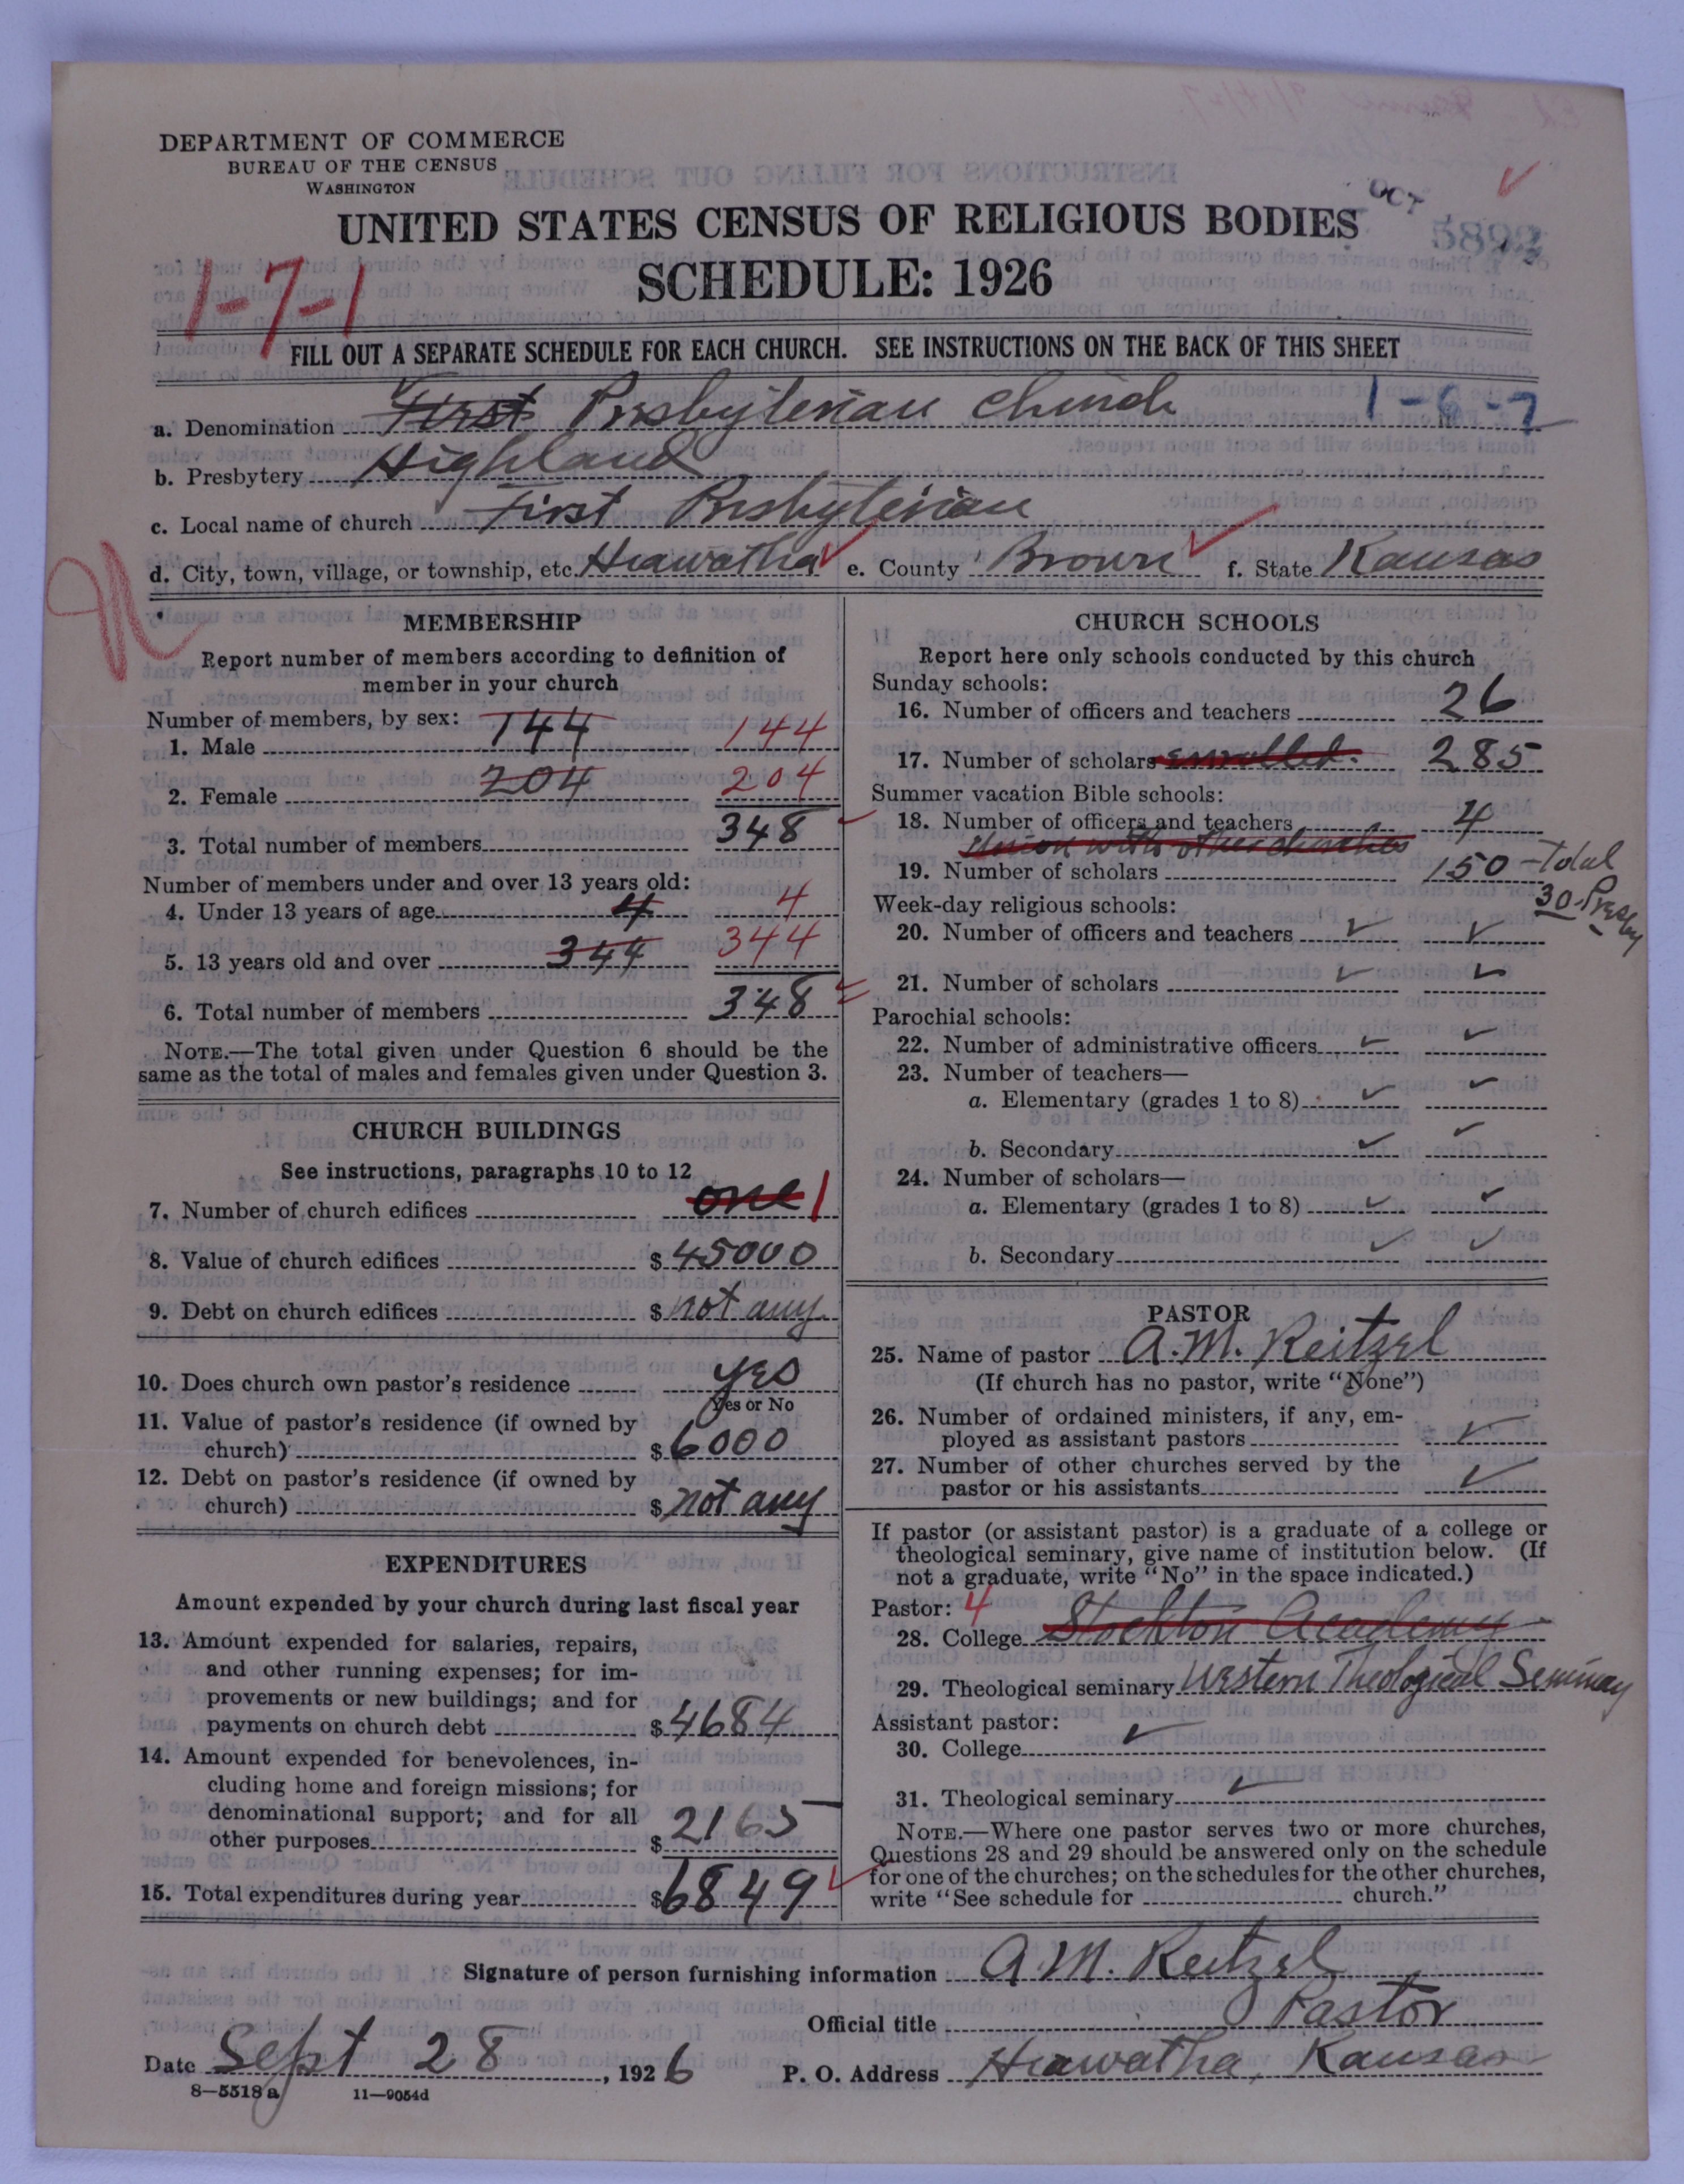 DEPARTMENT OF COMMERCE
BUREAU OF THE CENSUS
WASHINGTON
OCT
UNITED STATES CENSUS OF RELIGIOUS BODIES
SCHEDULE: 1926
1-7-1
FILL OUT A SEPARATE SCHEDULE FOR EACH CHURCH. SEE INSTRUCTIONS ON THE BACK OF THIS SHEET
a. Denomination First Presbyterian Church 1-6-7
b. Presbytery Highland
c. Local name of church First Presbyterian
d. City, town, village, or township, etc. Hiawatha e. County Brown f. State Kansas
MEMBERSHIP
Report number of members according to definition of
member in your church
Number of members, by sex:
1. Male 144 144
2. Female 204 204
3. Total number of members 348
Number of members under and over 13 years old:
4. Under 13 years of age 4 4
5. 13 years old and over 344 344
6. Total number of members 348
NOTE.—The total given under Question 6 should be the
same as the total of males and females given under Question 3.
CHURCH BUILDINGS
See instructions, paragraphs 10 to 12
7. Number of church edifices one 1
8. Value of church edifices $ 45000
9. Debt on church edifices $ not any
10. Does church own pastor's residence yes
Yes or No
11. Value of pastor's residence (if owned by
church) $ 6000
12. Debt on pastor's residence (if owned by
church) $ not any
EXPENDITURES
Amount expended by your church during last fiscal year
13. Amount expended for salaries, repairs,
and other running expenses; for im-
provements or new buildings; and for
payments on church debt $ 4684
14. Amount expended for benevolences, in-
cluding home and foreign missions; for
denominational support; and for all
other purposes $ 2165
15. Total expenditures during year $ 6849
CHURCH SCHOOLS
Report here only schools conducted by this church
Sunday schools:
16. Number of officers and teachers 26
17. Number of scholars enrolled. 285
Summer vacation Bible schools:
18. Number of officers and teachers 4
Union with other churches
19. Number of scholars 150 - Total
30 - Presby
Week-day religious schools:
20. Number of officers and teachers ✓ ✓
21. Number of scholars ✓ ✓
Parochial schools:
22. Number of administrative officers ✓ ✓
23. Number of teachers—
a. Elementary (grades 1 to 8) ✓ ✓
b. Secondary ✓ ✓
24. Number of scholars—
a. Elementary (grades 1 to 8) ✓ ✓
b. Secondary ✓ ✓
PASTOR
25. Name of pastor A. M. Reitzel
(If church has no pastor, write "None")
26. Number of ordained ministers, if any, em-
ployed as assistant pastors ✓
27. Number of other churches served by the
pastor or his assistants ✓
If pastor (or assistant pastor) is a graduate of a college or
theological seminary, give name of institution below. (If
not a graduate, write "No" in the space indicated.)
Pastor: 4
28. College Stockton Academy
29. Theological seminary Western Theological Seminary
Assistant pastor:
30. College ✓
31. Theological seminary ✓
NOTE.—Where one pastor serves two or more churches,
Questions 28 and 29 should be answered only on the schedule
for one of the churches; on the schedules for the other churches,
write "See schedule for church."
Signature of person furnishing information A. M. Reitzel
Official title Pastor
Date Sept 28, 1926 P. O. Address Hiawatha, Kansas
8—5518 a 11—9054d